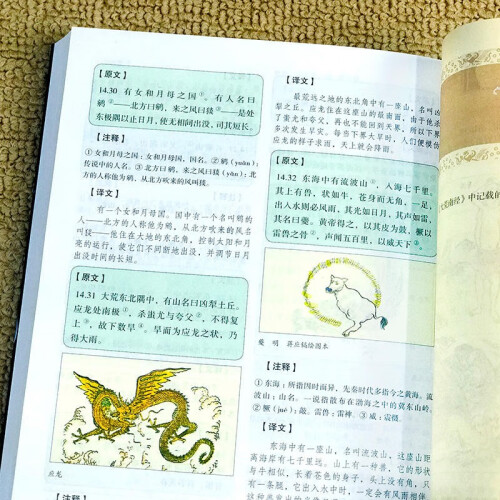 【原文】
14.30 有女和月母之国①。有人名曰
鹓②——北方曰鹓，来之风曰狻③——是处
东极隅以止日月，使无相间出没，司其短长。
【注释】
①女和月母之国：女和月母，国名。②鹓（yuān）：
传说中的人名。③北方曰鹓，来之风曰狻（yǎn）：北
方的人称他为鹓，从北方吹来的风叫狻。
【译文】
有一个女和月母国。国中有一个名叫鹓的
人——北方的人称他为鹓，从北方吹来的风名
叫狻——他住在大地的东北角，控制太阳和月
亮的运行，使它们不同断地出没，并调节日月
出没时间的长短。
【原文】
14.31 大荒东北隅中，有山名曰凶犁土丘。
应龙处南极①，杀蚩尤与夸父②，不得复
上③，故下数旱④。旱而为应龙之状，乃
得大雨。
应龙
【注释】
【译文】
最荒远之地的东北角中有一座山，名叫凶
犁之丘。应龙住在这座山的最南面，由于他杀
了蚩尤和夸父，再也不能回到天界，所以下界
多次发生旱灾。每当下界大旱时，人们便模仿
应龙的样子求雨，天上就会降雨。
【原文】
14.32 东海中有流波山①，入海七千里。
其上有兽，状如牛，苍身而无角，一足，
出入水则必风雨，其光如日月，其声如雷，
其名曰夔。黄帝得之，以其皮为鼓，橛以
雷兽之骨②，声闻五百里，以威天下③。
夔 明 蒋应镐绘图本
【注释】
①东海：所指因时而异，先秦时代多指今之黄海。流
波山：山名。一说指散布在渤海之中的冀东山岭。
②橛（jué）：敲。雷兽：雷神。③威：震慑。
【译文】
东海中有一座山，名叫流波山，这座山距
离海岸有七千里远。山上有一种兽，它的形状
与牛相似，长着苍色的身子，头上没有角，只
有一条腿，它出入水中时，一定会有风雨相伴，